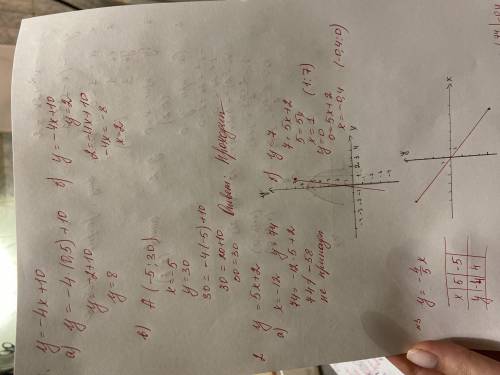 y = -4x+10
а) y = -4·(0,5)+10
y = -2+10
y = 8
б) y = -4x+10
y = 2
2 = -4x+10
-4x = -8
x = 2
в) A(-5; 30)
x = -5
y = 30
30 = -4(-5)+10
30 = 20+10
30 = 30
Ответ:
2. y = 5x+2
а) x = -12 y = 74
74 = -12·5+2
74 ≠ -58
не принадл
б) y = 7
7 = 5x+2
5 = 5x
x = 1 (1; 7)
y = 0
0 = 5x+2
x = -0,4 (-0,4; 0)
y
x
№3 y = -4/5 x
x | 5 | -5
y | -4 | 4
y
x